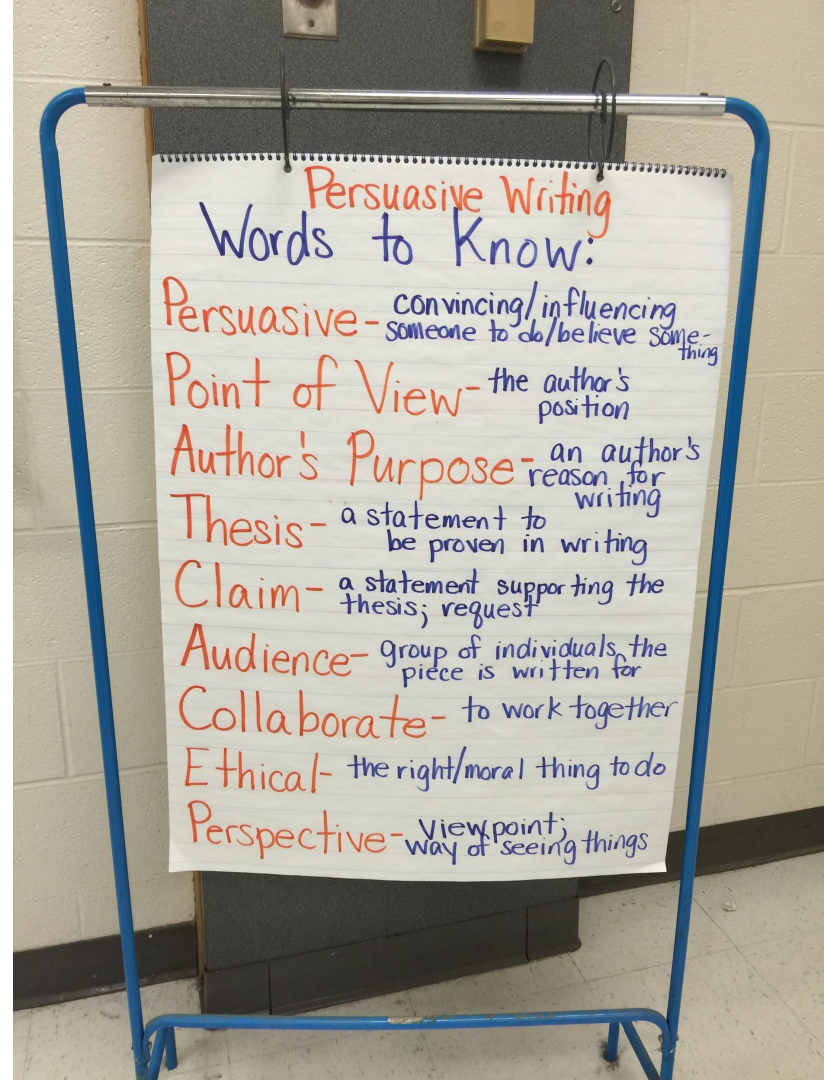 Persuasive Writing
Words to Know:
Persuasive- convincing/influencing
someone to do/believe some-
thing
Point of View- the author's
position
Author's Purpose- an author's
reason for
writing
Thesis- a statement to
be proven in writing
Claim- a statement supporting the
thesis; request
Audience- group of individuals the
piece is written for
Collaborate- to work together
Ethical- the right/moral thing to do
Perspective- viewpoint;
way of seeing things